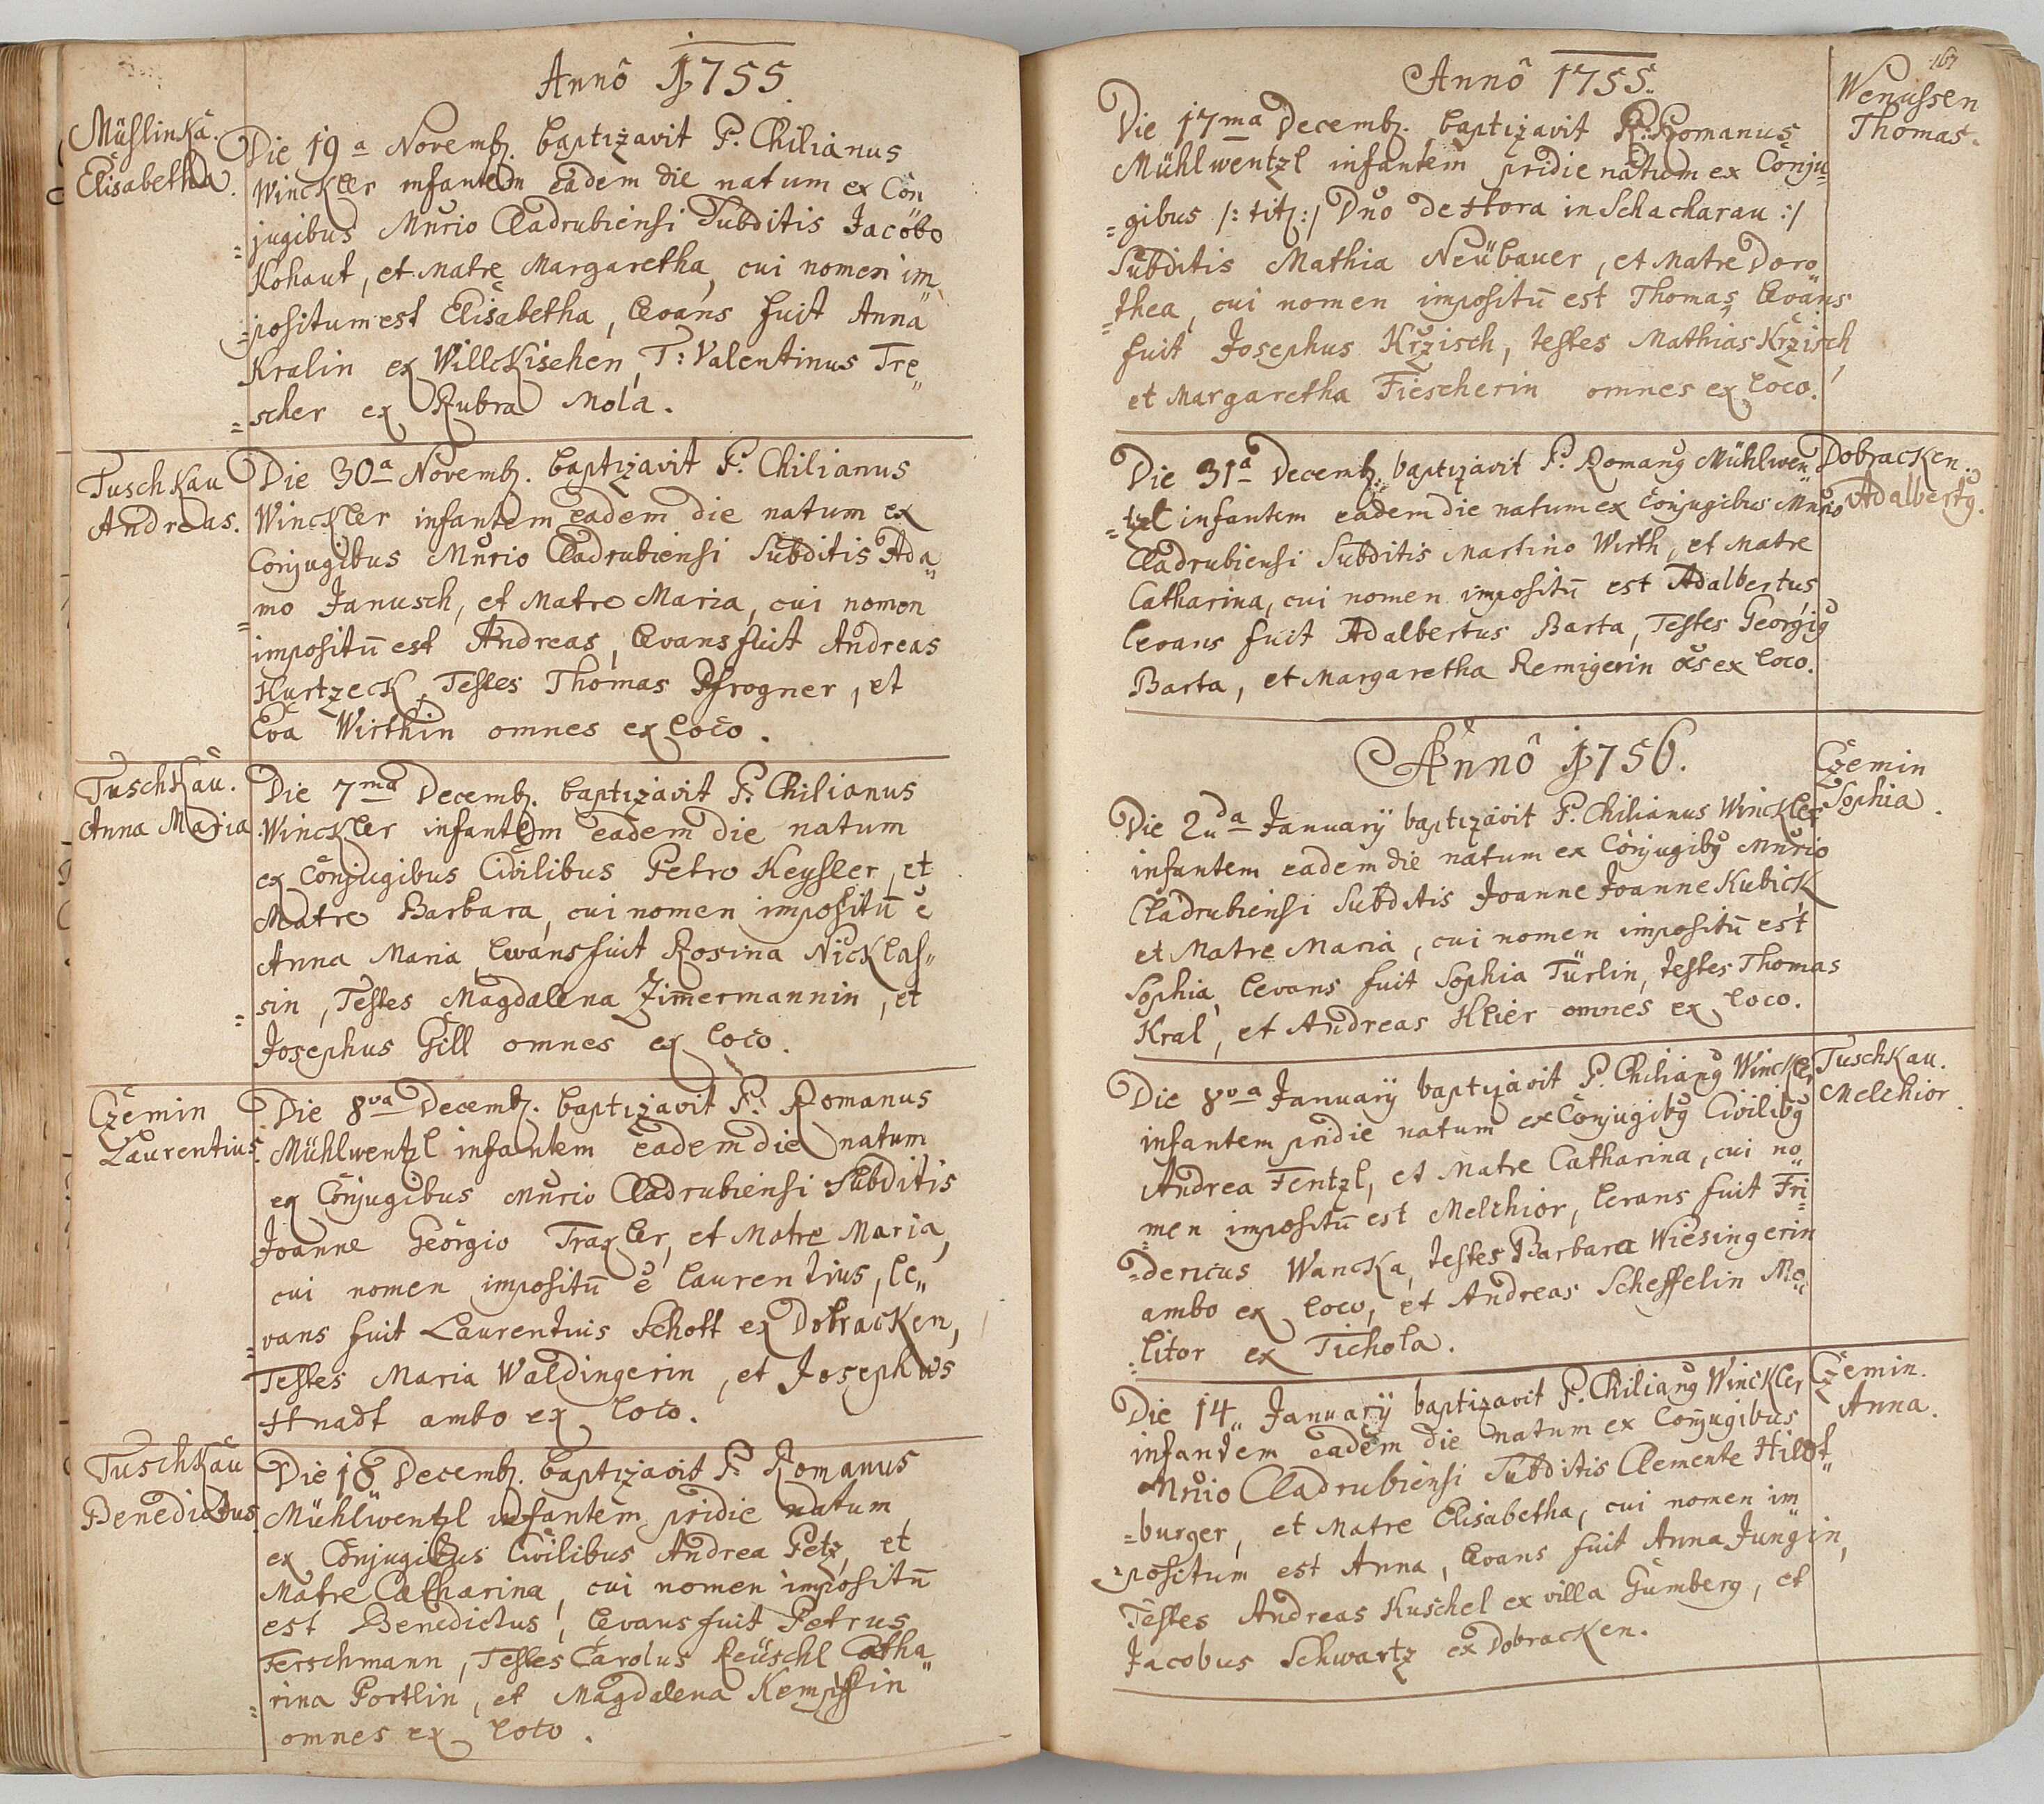 Anno 1755.
Mühlinka.
Elisabetha.
Die 19a Novemb. baptizavit P. Chilianus
Winckler infantem eadem die natum ex Con„
=jugibus Mnrio Cladrubiensi Subditis Jacobo
Kohaut, et Matre Margaretha, cui nomen im„
=positum est Elisabetha, levans fuit Anna
Kralin ex Willckischen, T: Valentinus Tre„
=scher ex Rubra Mola.
Tuschkau
Andreas.
Die 30a Novemb. baptizavit P. Chilianus
Winckler infantem eadem die natum ex
Conjugibus Mnrio Cladrubiensi Subditis Ada„
=mo Janusch, et Matre Maria, cui nomen
impositū est Andreas, levans fuit Andreas
Hurtzeck, Testes Thomas Pfrogner, et
Eva Wirthin omnes ex loco.
Tuschkau.
Anna Maria.
Die 7ma Decemb. baptizavit P. Chilianus
Winckler infantem eadem die natum
ex Conjugibus Civilibus Petro Keysler, et
Matre Barbara, cui nomen impositū ē
Anna Maria, levans fuit Rosina Nicklas„
=sin, Testes Magdalena Zimermannin, et
Josephus Gill omnes ex loco.
Czemin
Laurentius.
Die 8va Decemb. baptizavit P. Romanus
Mühlwentzl infantem eadem die natum
ex Conjugibus Mnrio Cladrubiensi Subditis
Joanne Georgio Traxler, et Matre Maria,
cui nomen impositū ē Laurentius, le„
=vans fuit Laurentius Schott ex Dobracken,
Testes Maria Waldingerin, et Josephus
Hnadt ambo ex loco.
Tuschkau
Benedictus.
Die 18„ Decemb. baptizavit P. Romanus
Mühlwentzl infantem pridie natum
ex Conjugibus Civilibus Andrea Petz, et
Matre Catharina, cui nomen impositū
est Benedictus, levans fuit Petrus
Ferschmann, Testes Carolus Reüschl Catha„
=rina Portlin, et Magdalena Kempffin
omnes ex loco.
167
Anno 1755.
Wenussen
Thomas.
Die 17ma Decemb. baptizavit P. Romanus
Mühlwentzl infantem pridie natum ex Conju„
=gibus /: tit: / Dno de Hora in Schacharau :/
Subditis Mathia Neübauer, et Matre Doro„
=thea, cui nomen impositū est Thomas, levans
fuit Josephus Kržisch, testes Mathias Kržisch,
et Margaretha Fiescherin omnes ex loco.
Dobracken.
Adalbertq.
Die 31a Decemb. baptizavit P. Romanq Mühlwen„
=tzl infantem eadem die natum ex Conjugibus Mnrio
Cladrubiensi Subditis Martino Wirth, et Matre
Catharina, cui nomen impositū est Adalbertus
levans fuit Adalbertus Barta, Testes Georgiq
Barta, et Margaretha Remigerin oes ex loco.
Anno 1756.
Czemin
Sophia.
Die 2da January baptizavit P. Chilianus Winckler
infantem eadem die natum ex Conjugibq Mnrio
Cladrubiensi Subditis Joanne Joanne Kubick
et Matre Maria, cui nomen impositū est
Sophia, levans fuit Sophia Türlin, testes Thomas
Kral, et Andreas Hlier omnes ex loco.
Tuschkau.
Melchior.
Die 8va January baptizavit P. Chilianq Winckler
infantem pridie natum ex Conjugibq Civilibq
Andrea Fentzl, et Matre Catharina, cui no„
=men impositū est Melchior, levans fuit Fri„
=dericus Wancka, testes Barbara Wiesingerin
ambo ex loco, et Andreas Scheffelin Mo„
=litor ex Tichola.
Czemin.
Anna.
Die 14„ January baptizavit P. Chilianq Winckler
infantem eadem die natum ex Conjugibus
Mnrio Cladrubiensi Subditis Clemente Hilot„
=burger, et Matre Elisabetha, cui nomen im„
=positum est Anna, levans fuit Anna Jungin,
Testes Andreas Kuschel ex villa Gumberg, et
Jacobus Schwartz ex Dobracken.